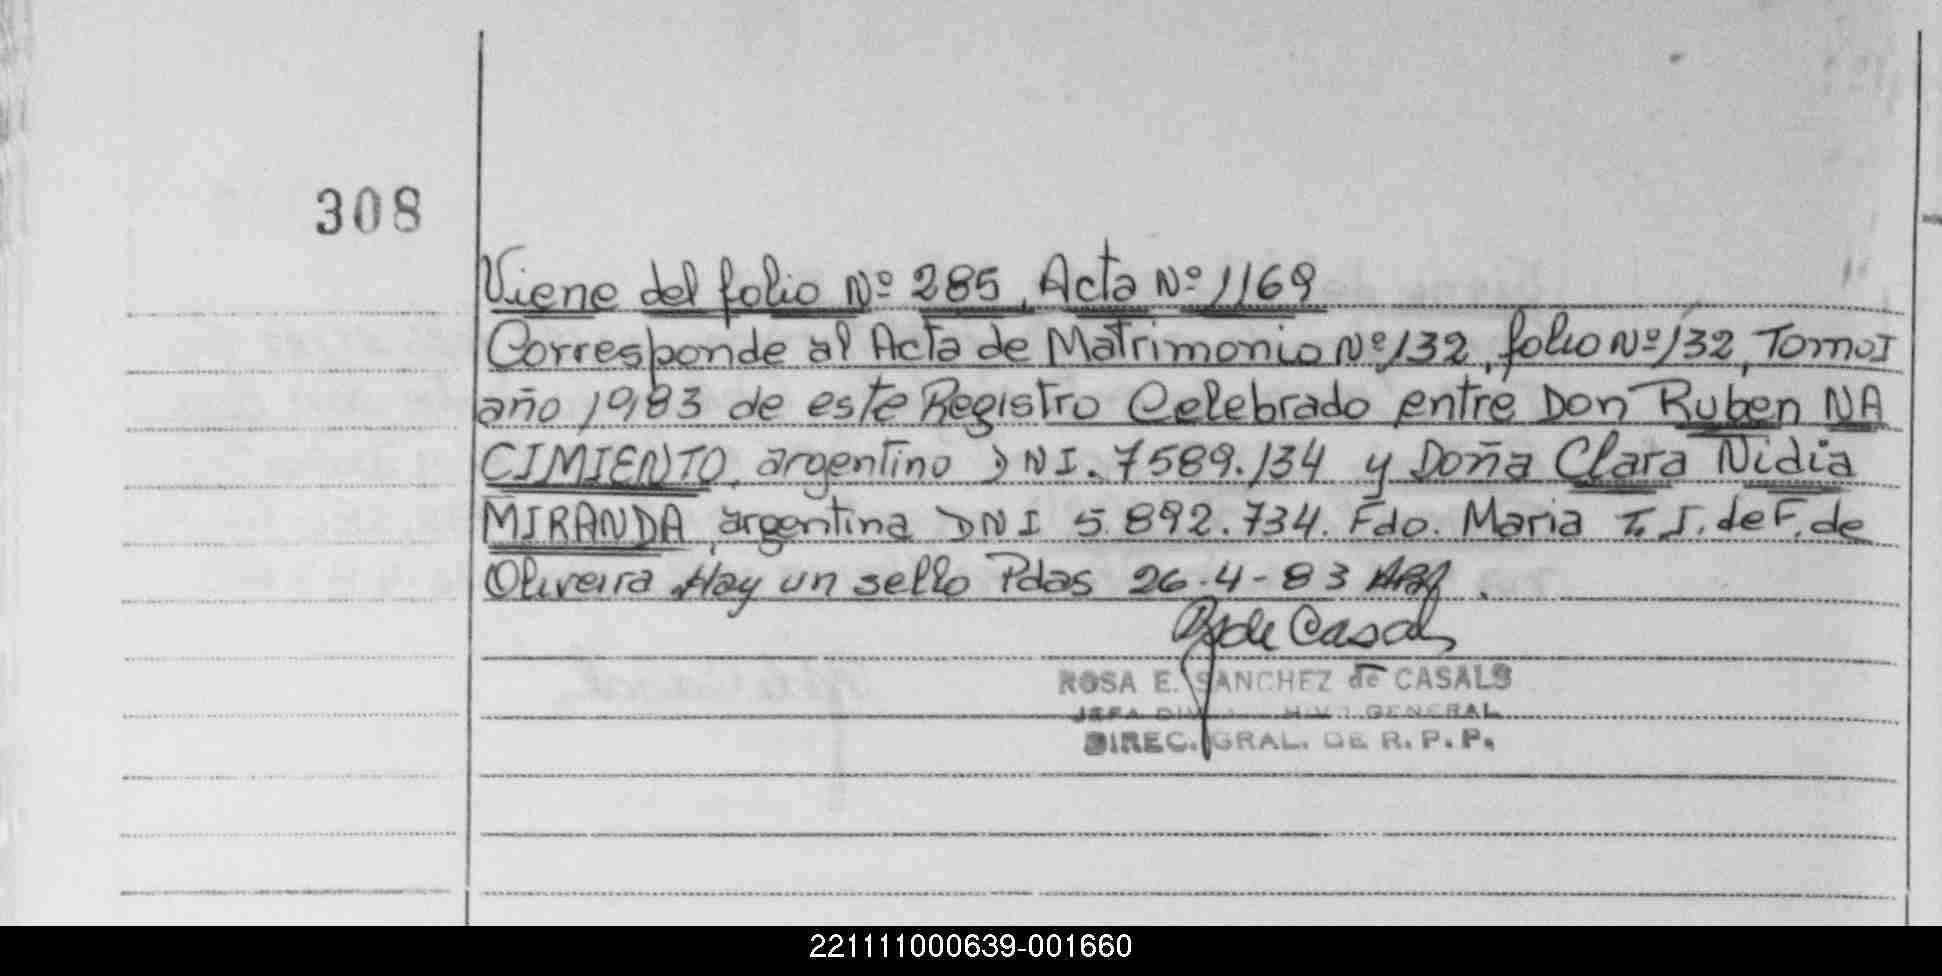 308
Viene del folio Nº 285, Acta Nº 1169
Corresponde al Acta de Matrimonio Nº 132, folio Nº 132, Tomo I
año 1983 de este Registro Celebrado entre Don Ruben NA
CIMIENTO, argentino DNI. 7589.134 y Doña Clara Nidia
MIRANDA, argentina DNI 5.892.734. Fdo. Maria T. J. de F. de
Oliveira Hay un sello Pdas 26-4-83
de Casals
ROSA E. SANCHEZ de CASALS
JEFA GENERAL
DIREC. GRAL. DE R. P. P.
221111000639-001660